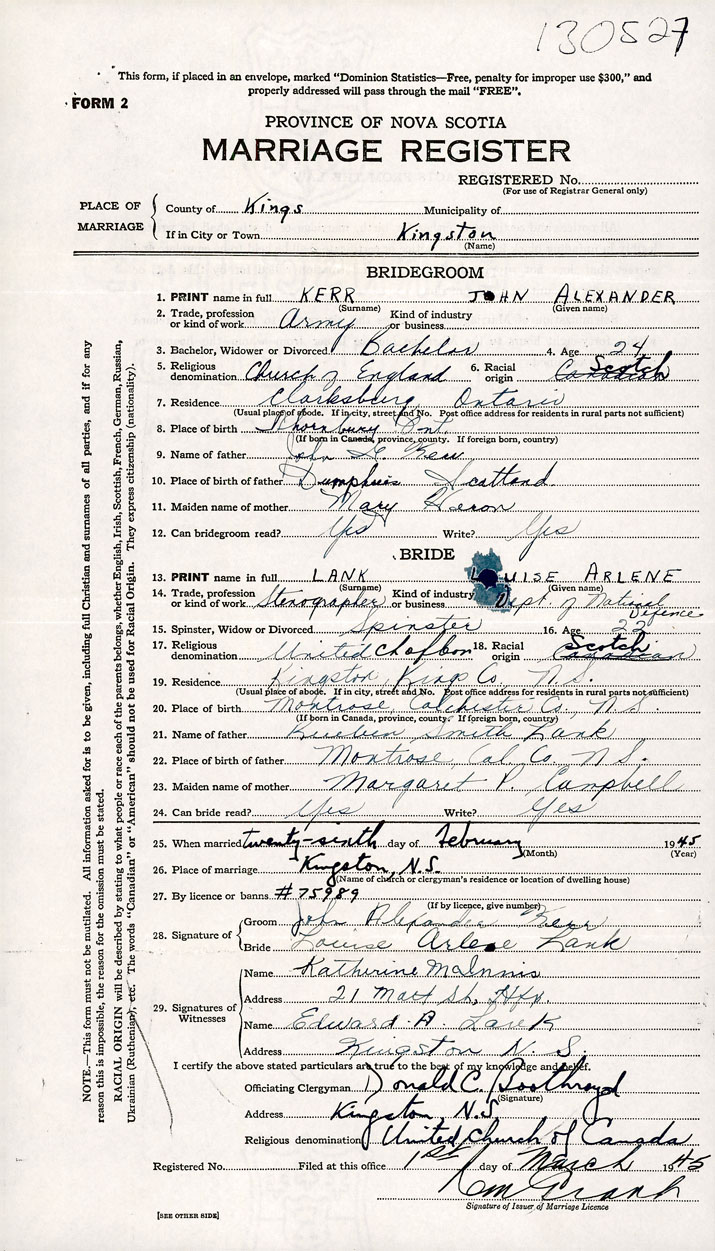 130527
This form, if placed in an envelope, marked "Dominion Statistics—Free, penalty for improper use $300," and
properly addressed will pass through the mail "FREE".
FORM 2
PROVINCE OF NOVA SCOTIA
MARRIAGE REGISTER
REGISTERED No.
(For use of Registrar General only)
PLACE OF MARRIAGE
County of Kings Municipality of
If in City or Town Kingston
(Name)
BRIDEGROOM
1. PRINT name in full KERR JOHN ALEXANDER
(Surname) (Given name)
2. Trade, profession or kind of work Army Kind of industry or business
3. Bachelor, Widower or Divorced Bachelor 4. Age 24
5. Religious denomination Church of England 6. Racial origin Canadian Scotch
7. Residence Clarksburg, Ontario
(Usual place of abode. If in city, street and No. Post office address for residents in rural parts not sufficient)
8. Place of birth Thornbury Ont.
(If born in Canada, province, county. If foreign born, country)
9. Name of father John Kerr
10. Place of birth of father Dumphries Scotland
11. Maiden name of mother Mary Heron
12. Can bridegroom read? Yes Write? Yes
BRIDE
13. PRINT name in full LANK LOUISE ARLENE
(Surname) (Given name)
14. Trade, profession or kind of work Stenographer Kind of industry or business Dept. of National Defence
15. Spinster, Widow or Divorced Spinster 16. Age 22
17. Religious denomination United Ch of Can 18. Racial origin Canadian Scotch
19. Residence Kingston Kings Co., N.S.
(Usual place of abode. If in city, street and No. Post office address for residents in rural parts not sufficient)
20. Place of birth Montrose, Colchester Co., N.S.
(If born in Canada, province, county. If foreign born, country)
21. Name of father Rueben Smith Lank
22. Place of birth of father Montrose, Col. Co. N.S.
23. Maiden name of mother Margaret P. Campbell
24. Can bride read? Yes Write? Yes
25. When married twenty-sixth day of February 1945
(Month) (Year)
26. Place of marriage Kingston, N.S.
(Name of church or clergyman's residence or location of dwelling house)
27. By licence or banns #75989
(If by licence, give number)
28. Signature of
Groom John Alexander Kerr
Bride Louise Arlene Lank
29. Signatures of Witnesses
Name Katherine McInnis
Address 21 St., Hfx.
Name Edward A. Lank
Address Kingston N.S.
I certify the above stated particulars are true to the best of my knowledge and belief.
Officiating Clergyman Donald C. Boothroyd
(Signature)
Address Kingston, N.S.
Religious denomination United Church of Canada
Registered No. Filed at this office 1st day of March 1945
Grant
Signature of Issuer of Marriage Licence
[SEE OTHER SIDE]
NOTE.—This form must not be mutilated. All information asked for is to be given, including full Christian and surnames of all parties, and if for any
reason this is impossible, the reason for the omission must be stated.
RACIAL ORIGIN will be described by stating to what people or race each of the parents belongs, whether English, Irish, Scottish, French, German, Russian,
Ukrainian (Ruthenian), etc. The words "Canadian" or "American" should not be used for Racial Origin. They express citizenship (nationality).